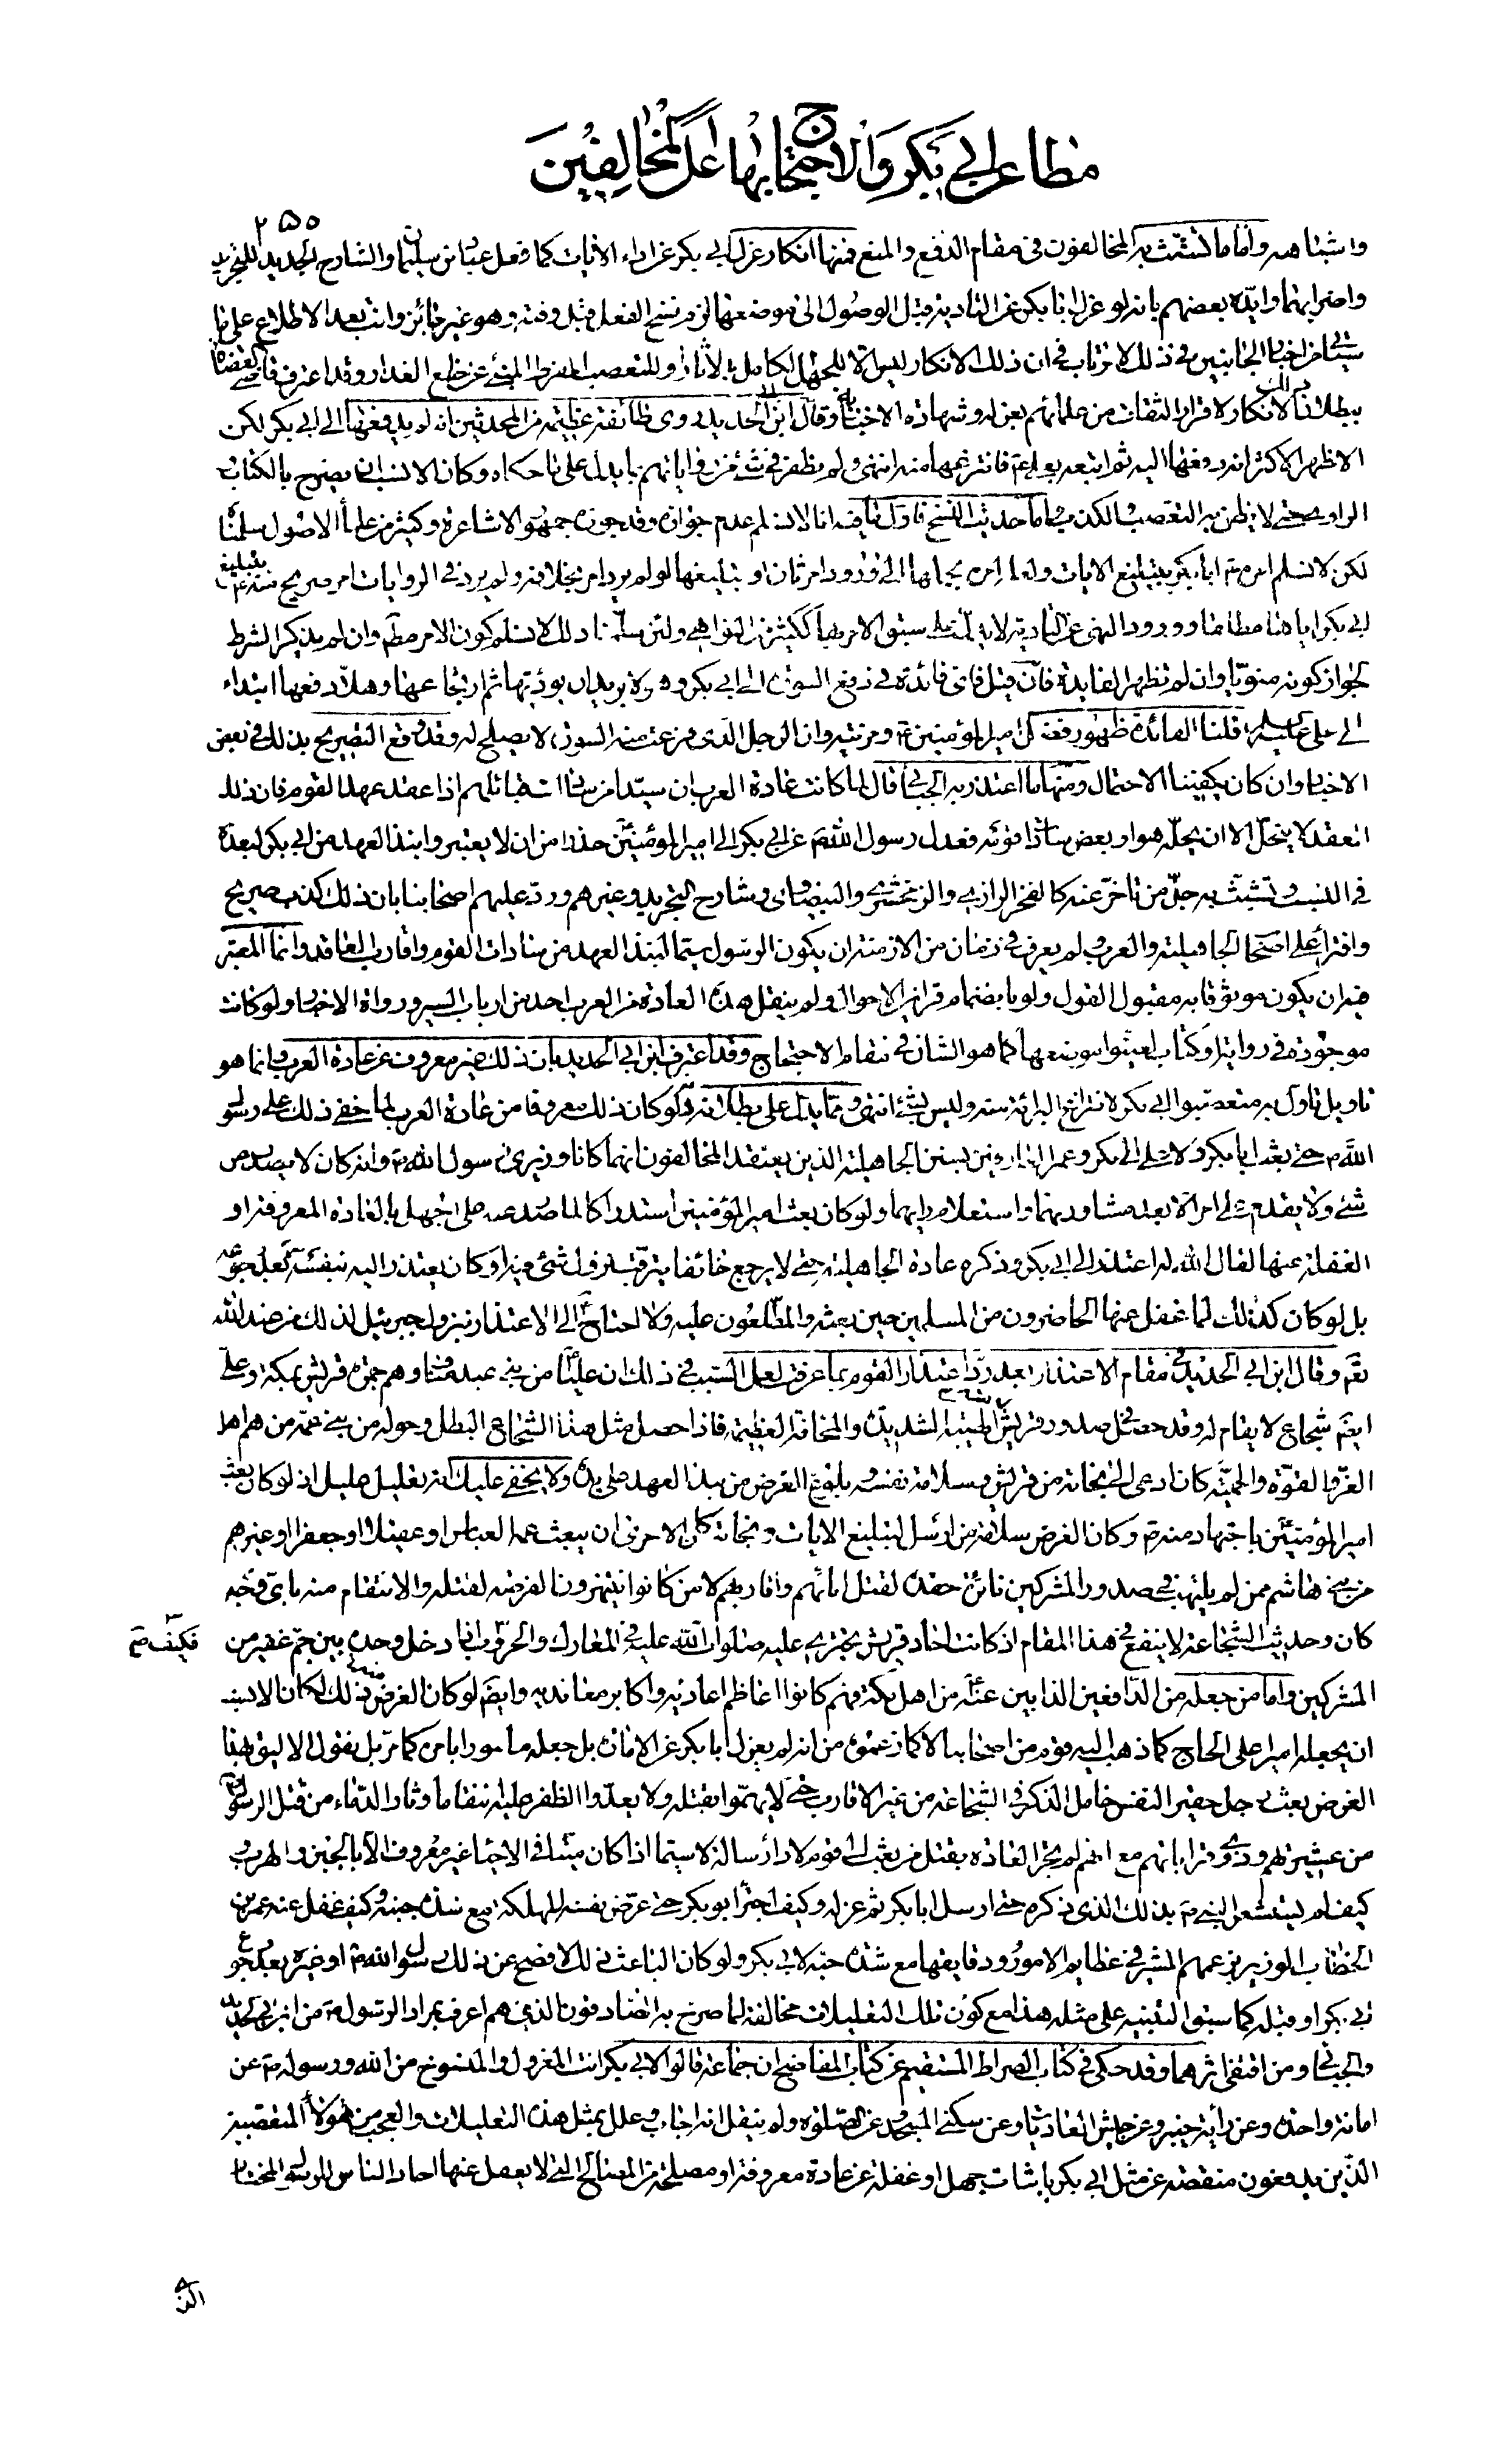 مطاعن ابي بكر والاحتجاج بها على المخالفين
٢٥٥
واشباهه واما ما تشبث به المخالفون في مقام الدفع والمنع فمنها انكار عزل ابي بكر عن اداء الايات كما فعل عباد بن سليمان والشارح الجديد للتجريد
واضرابهما وايده بعضهم بانه لو عزل ابا بكر عن التادية قبل الوصول الى موضعها لزم نسخ الفعل قبل وقته وهو غير جائز وانت بعد الاطلاع على ما
سياتي من اخبار الجانبين في ذلك لا ترتاب في ان ذلك الانكار ليس الا للجهل الكامل بالاثار او للتعصب المفرط المنبئ عن خلع العذار وقد اعترف قاضي القضاة
ببطلان ذلك الانكار لاقرار الثقات من علمائهم بعزله وشهادة الاخبار به وقال ابن ابي الحديد روى طائفة عظيمة من المحدثين انه لم يدفعها الى ابي بكر لكن
الاظهر الاكثر انه دفعها اليه ثم اتبعه بعلي ع فانتزعها منه انتهى ولم نظفر في شئ من رواياتهم بما يدل على ما حكاه وكان الانسب ان يصرح بالكتاب
الراوي حتى لا يظن به التعصب والكذب واما حديث النسخ فاول ما فيه انا لا نسلم عدم جوازه وقد جوزه جمهور الاشاعرة وكثير من علماء الاصول سلمناه
لكن لا نسلم امره ص ابا بكر بتبليغ الايات ولعله امره بحملها الى ورود امر ثان او تبليغها لو لم يرد امر بخلافه ولم يرد في الروايات امر صريح منه ص بتبليغ
ابي بكر اياها مطلقا وورود النهي عن التادية لا يدل على سبق الامر بها ككثير من النواهي ولئن سلمنا ذلك لا نسلم كون الامر مطلقا وان لم يذكر الشرط
لجواز كونه منويا وان لم تظهر الفايدة فان قيل فاي فائدة في دفع السورة الى ابي بكر وهو لا يريد ان يؤديها ثم ارتجاعها وهلا دفعها ابتداء
الى علي عليه السلم قلنا الفائدة ظهور فضل امير المؤمنين ع ومزيته وان الرجل الذي نزعت منه السورة لا يصلح له وقد وقع التصريح بذلك في بعض
الاخبار وان كان يكفينا الاحتمال ومنها ما اعتذر به الجبائي قال لما كانت عادة العرب ان سيدا من سادات قبائلهم اذا عقد عهدا لقوم فان ذلك
العقد لا ينحل الا ان يحله هو او بعض سادات قومه فعدل رسول الله ص عن ابي بكر الى امير المؤمنين حذرا من ان لا يعتبروا نبذ العهد من ابي بكر لبعده
في النسب وتشبث به جل من تاخر عنه كالفخر الرازي والزمخشري والبيضاوي وشارح التجريد وغيرهم ورد عليهم اصحابنا بان ذلك كذب صريح
وافتراء على اصحاب الجاهلية والعرب ولم يعرف في زمان من الازمنة ان يكون الرسول سيما لنبذ العهد من سادات القوم واقارب العاقد وانما المعتبر
فيه ان يكون موثوقا به مقبول القول ولو بانضمام قراين الاحوال ولم ينقل هذه العادة من العرب احد من ارباب السير ورواة الاخبار ولو كانت
موجودة في رواية او كتاب لعينوا موضعها كما هو الشان في مقام الاحتجاج وقد اعترف ابن ابي الحديد بان ذلك غير معروف عن عادة العرب وانما هو
تاويل تاول به متعصبوا ابي بكر لانتزاع البرائة منه وليس بشئ انتهى ومما يدل على بطلانه انه لو كان ذلك معروفا من عادة العرب لما خفي ذلك على رسول
الله ص حتى بعث ابا بكر ولا على ابي بكر وعمر العارفين بسنن الجاهلية الذين يعتقد المخالفون انهما كانا وزيري رسول الله ص وانه كان لا يصدر عن
شئ ولا يقدم على امر الا بعد مشاورتهما واستعلام رايهما ولو كان بعث امير المؤمنين استدراكا لما صدر عنه على الجهل بالعادة المعروفة او
الغفلة عنها لقال الله له اعتذر الى ابي بكر وذكره عادة الجاهلية حتى لا يرجع خائفا يترقب نزول شئ فيه او كان يعتذر اليه بنفسه ص بعد رجوعه
بل لو كان كذلك لما غفل عنها الحاضرون من المسلمين حين بعثه والمطلعون عليه ولا احتاج ص الى الاعتذار بنزول جبرئيل لذلك من عند الله
تعم وقال ابن ابي الحديد في مقام الاعتذار بعد رد اعتذار القوم بما عرفت لعل السبب في ذلك ان عليا من بني عبد مناف وهم جمرة قريش بمكة وعلي
ايضم شجاع لا يقام له وقد حصل في صدور قريش منه الهيبة الشديدة والمخافة العظيمة فاذا حصل مثل هذا الشجاع البطل وحوله من بني عمه من هم اهل
العز والقوة والحمية كان ادعى الى نجاته من قريش وسلامة نفسه وبلوغ الغرض من نبذ العهد على يده ولا يخفى عليك انه تعليل عليل اذ لو كان بعث
امير المؤمنين باجتهاد منه ص وكان الغرض سلامة من ارسل لتبليغ الايات ونجاته كان الاحرى ان يبعث عمه العباس او عقيلا او جعفرا او غيرهم
من بني هاشم ممن لم يلتهب في صدور المشركين نائرة حقده لقتل ابائهم واقاربهم لا من كانوا ينتهزون الفرصة لقتله والانتقام منه باي وجه
كان وحديث الشجاعة لا ينفع في هذا المقام اذ كانت احاد قريش يجتري عليه صلوات الله عليه في المعارك والحروب فكيف ص اذا دخل وحده بين جم غفير من
المشركين واما من جعله من الدافعين الذابين عنه من اهل مكة فهم كانوا اعاظم اعاديه واكابر معانديه وايضم لو كان الغرض منه ذلك لكان الانسب
ان يجعله اميرا على الحاج كما ذهب اليه قوم من اصحابنا لا كما زعموه من انه لم يعزل ابا بكر عن الامارة بل جعله مامورا بامره كما مر بل نقول الاليق بهذا
الغرض بعث رجل حقير النفس خامل الذكر في الشجاعة من غير الاقارب حتى لا يهتموا بقتله ولا يعدوا الظفر عليه انتقاما وثارا لدماء من قتل الرسول ص
من عشيرتهم وذوي قراباتهم مع انهم لم تجر العادة بقتل من بعث الى قوم لاداء رسالة لا سيما اذا كان ميتا في الاحياء غير معروف الا بالجبن والهرب
كيف لم يستشعر النبي ص بذلك الذي ذكره حتى ارسل ابا بكر ثم عزله وكيف اجترأ ابو بكر حتى عرض نفسه للهلكة مع شدة جبنه وكيف غفل عنه عمر بن
الخطاب الوزير بزعمهم المشير في عظايم الامور ودقايقها مع شدة حبه لابي بكر ولو كان الباعث ذلك لافصح عن ذلك رسول الله ص او غيره بعد رجوع
ابي بكر او قبله كما سبق التنبيه على مثله هذا مع كون تلك التعليلات مخالفة لما صرح به الصادقون الذين هم اعرف بمراد الرسول ص من ابن ابي الحديد
والجبائي ومن اقتفى اثرهما وقد حكى في كتاب الصراط المستقيم عن كتاب المفاضح ان جماعة قالوا لابي بكر انت المعزول والمنسوخ من الله ورسوله ص عن
امانة واحدة وعن راية خيبر وعن جيش العاديات وعن سكنى المسجد وعن الصلوة ولم ينقل انه اجاب وعلل بمثل هذه التعليلات والعجب من هؤلاء المتعصبين
الذين يدفعون منقصة عن مثل ابي بكر باثبات جهل او غفلة عن عادة معروفة او مصلحة من المصالح التي لا يغفل عنها احاد الناس للرسول المختار